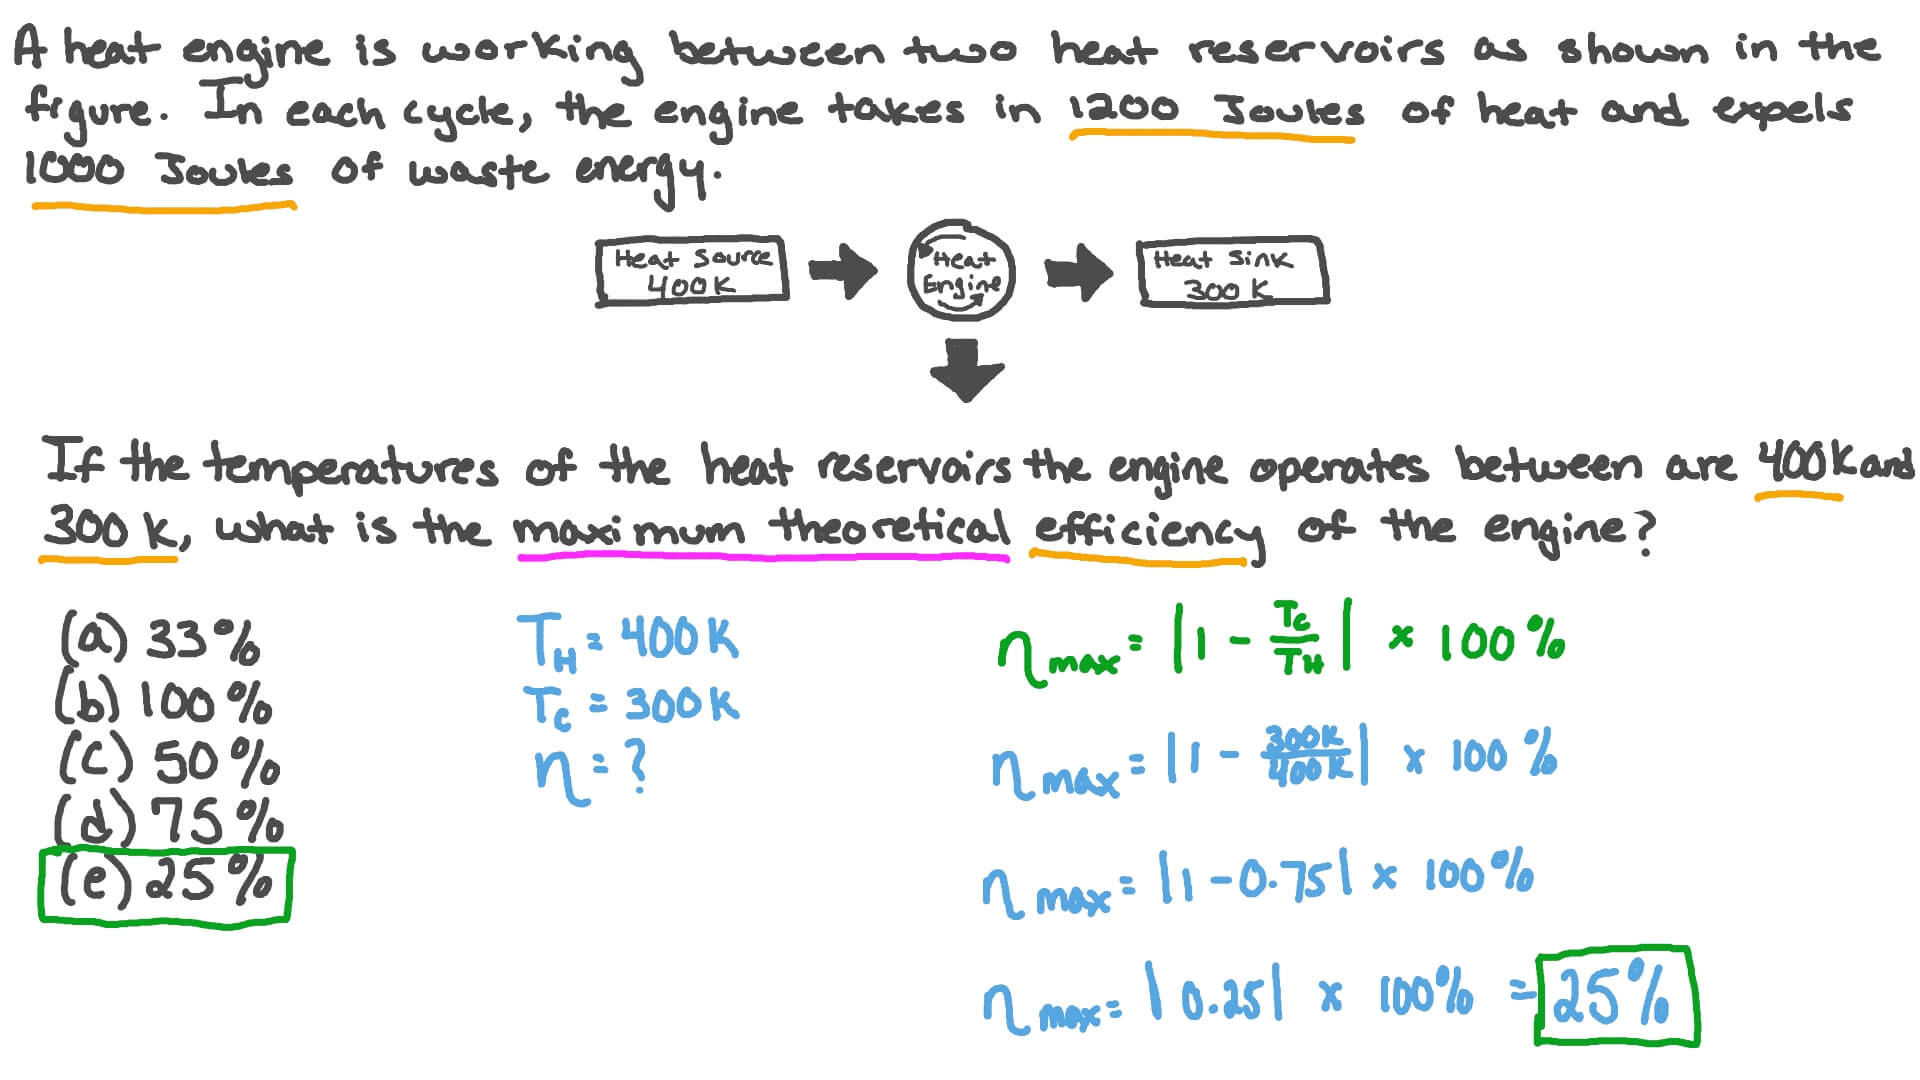 A heat engine is working between two heat reservoirs as shown in the
figure. In each cycle, the engine takes in 1200 Joules of heat and expels
1000 Joules of waste energy.
Heat Source
400K
Heat
Engine
Heat Sink
300 K
If the temperatures of the heat reservoirs the engine operates between are 400K and
300 K, what is the maximum theoretical efficiency of the engine?
(a) 33%
(b) 100%
(c) 50%
(d) 75%
(e) 25%
T_H = 400K
T_C = 300K
η = ?
η_max = |1 - T_C/T_H| × 100%
η_max = |1 - 300K/400K| × 100%
η_max = |1 - 0.75| × 100%
η_max = |0.25| × 100% = 25%